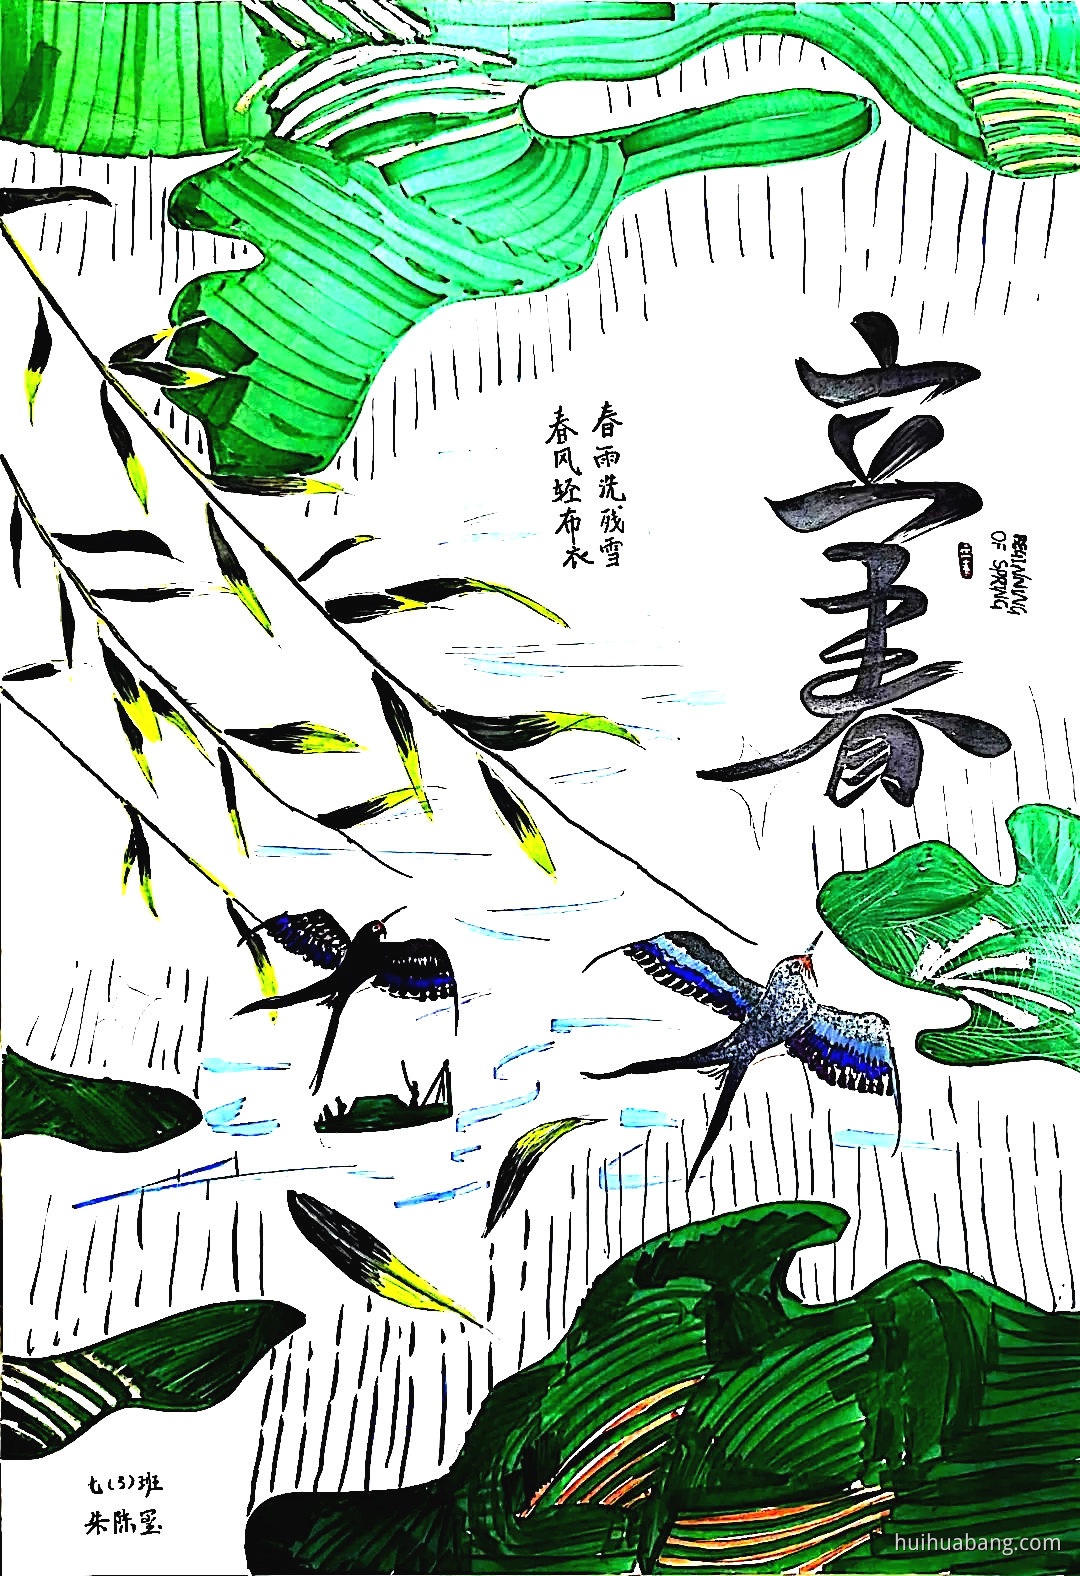 立春
BEGINNING
OF SPRING
立春
春雨洗残雪
春风轻布衣
七(5)班
朱陈墨
huihuabang.com